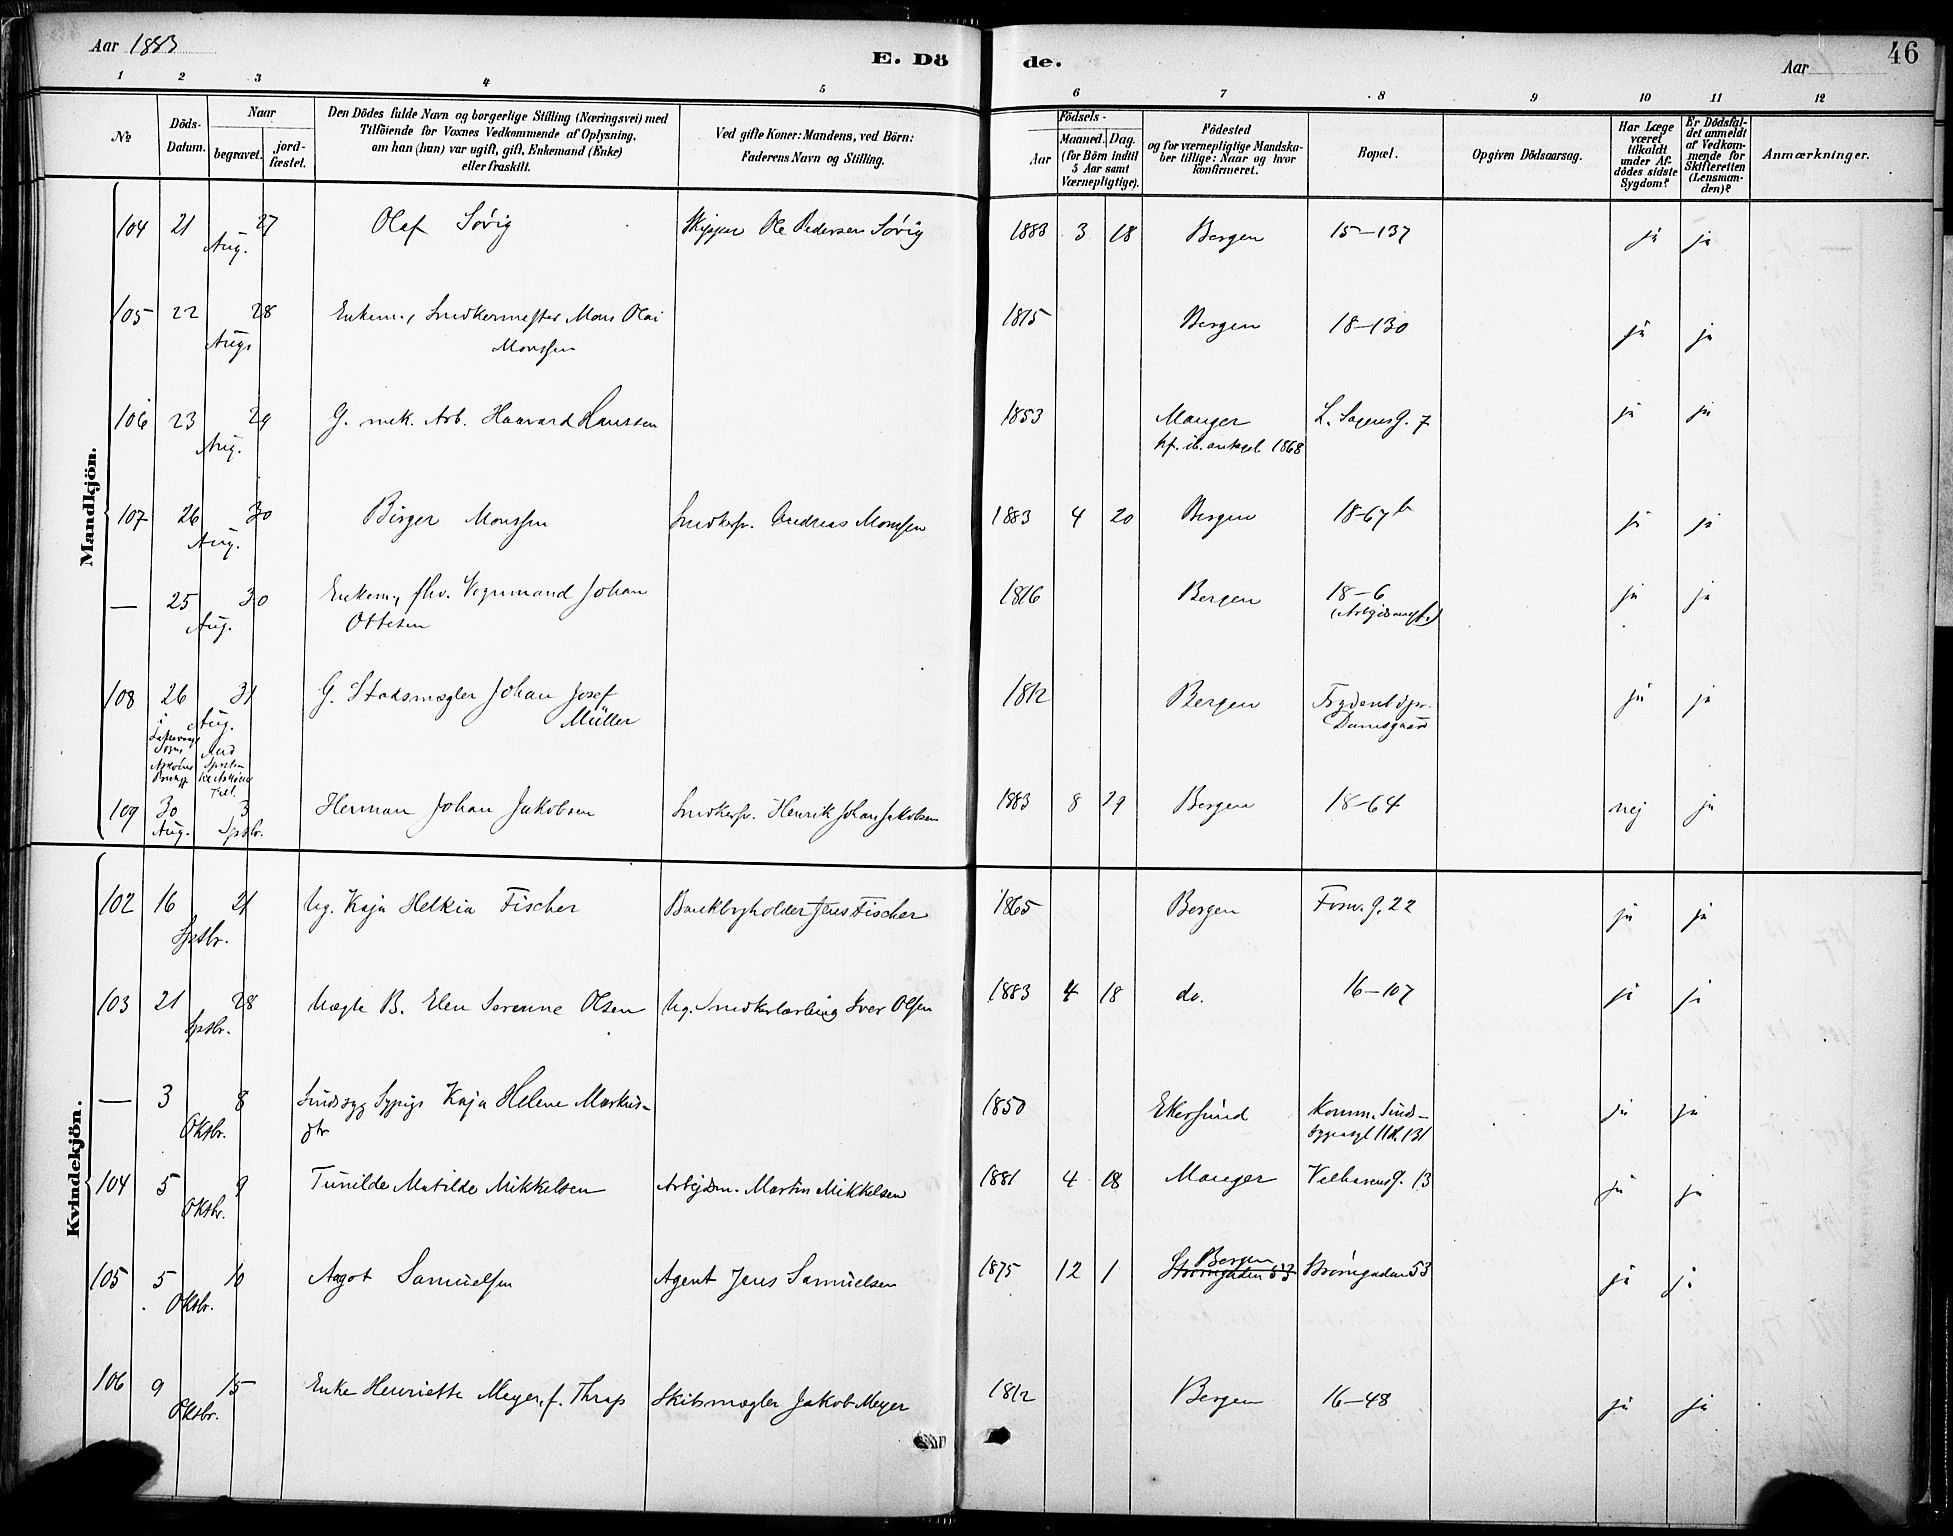 Aar 1883
E. Dö
de.
Aar
46
1 2 3 4 5 6 7 8 9 10 11 12
No
Döds-Datum.
Naar
begravet.
jord-fæstet.
Den Dödes fulde Navn og borgerlige Stilling (Næringsvei) med
Tilföiende for Voxnes Vedkommende af Oplysning,
om han (hun) var ugift, gift, Enkemand (Enke)
eller fraskilt.
Ved gifte Koner: Mandens, ved Börn:
Faderens Navn og Stilling.
Födsels-
Aar
Maaned. Dag.
(for Börn indtil
5 Aar samt
Værnepligtige).
Födested
og for værnepligtige Mandska-
ber tillige: Naar og hvor
konfirmeret.
Bopæl.
Opgiven Dödsaarsag.
Har Læge
været
tilkaldt
under Af-
dödes sidste
Sygdom?
Er Dödsfal-
det anmeldt
af Vedkom-
mende for
Skifteretten
(Lensman-
den)?
Anmærkninger.
Mandkjön.
104 21 27 Aug. Olaf Sørig Skipper Ole Pedersen Sørig 1883 3 18 Bergen 15-137 ja ja
105 22 28 Aug. Enkem., Snedkermester Mons Olai
Monssen 1815 Bergen 18-130 ja ja
106 23 29 Aug. G. mek. Arb. Haavard Hanssen 1853 Manger L. Sagens G. 7 ja ja
kf. ib. 1868
107 26 30 Aug. Birger Monssen Snedkersv. Andreas Monssen 1883 4 20 Bergen 18-67b ja ja
— 25 30 Aug. Enkem., fhv. Vognmand Johan
Ottesen 1816 Bergen 18-6 ja ja
108 26 31 Aug. G. Stadsmægler Johan Josef
Müller 1812 Bergen Damsgaard ja ja
109 30 Aug. 3 Sptbr. Herman Johan Jakobsen Snedkersv. Henrik Johan Jakobsen 1883 8 29 Bergen 18-64 nej ja
Kvindekjön.
102 16 21 Sptbr. Ug. Kaja Helkia Fischer Jens Fischer 1865 Bergen Fosw. G. 22 ja ja
103 21 28 Sptbr. Uægte B. Elen Serenne Olsen Ug. Snedkerlærling Iver Olsen 1883 4 18 do. 16-107 ja ja
— 3 8 Oktbr. Sindssyg Sypige Kaja Helene Markus-
dtr 1850 Ekersund Komm. Sinds-
131 ja ja
104 5 9 Oktbr. Tunilde Matilde Mikkelsen Arbejdsm. Martin Mikkelsen 1881 4 18 Manger Velhavens G. 13 ja ja
105 5 10 Oktbr. Aagot Samuelsen Agent Jens Samuelsen 1875 12 1 Bergen Strømgaden 53 Strømgaden 53 ja ja
106 9 15 Oktbr. Enke Henriette Meyer, f. Thrap Skibsmægler Jakob Meyer 1812 Bergen 16-48 ja ja